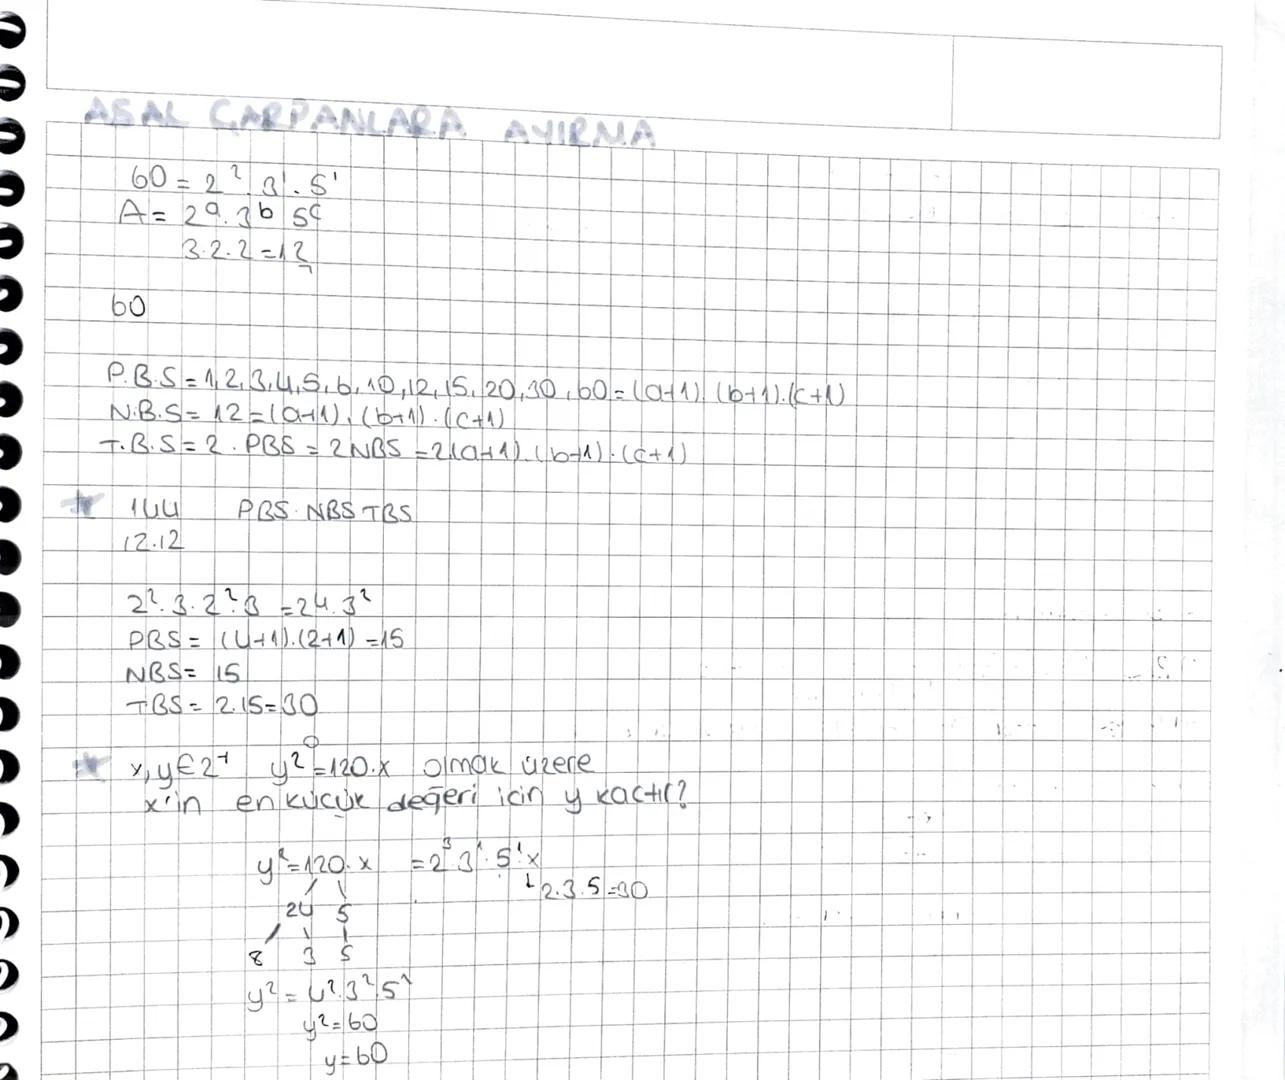 ASAL ÇARPANLARA AYIRMA
60 = 2². 3¹. 5¹
A = 2ᵃ. 3ᵇ 5ᶜ
3.2.2 = 12
60
P.B.S = 1,2,3,4,5,6,10,12,15,20,30,60 = (a+1). (b+1).(c+1)
N.B.S = 12 = (a+1). (b+1). (c+1)
T.B.S = 2. PBS = 2NBS = 2(a+1).(b+1).(c+1)
144 PBS NBS TBS
12.12
2².3.2².3 = 24.3²
PBS = (4+1).(2+1) = 15
NBS = 15
TBS = 2.15 = 30
x,y ∈ Z⁺ y² = 120.x olmak üzere
x'in en küçük değeri için y kaçtır?
y² = 120.x = 2³ 3¹. 5¹ x
2.3.5 = 30
24 5
8 3 5
y² = 4².3².5²
y² = 60
y = 60